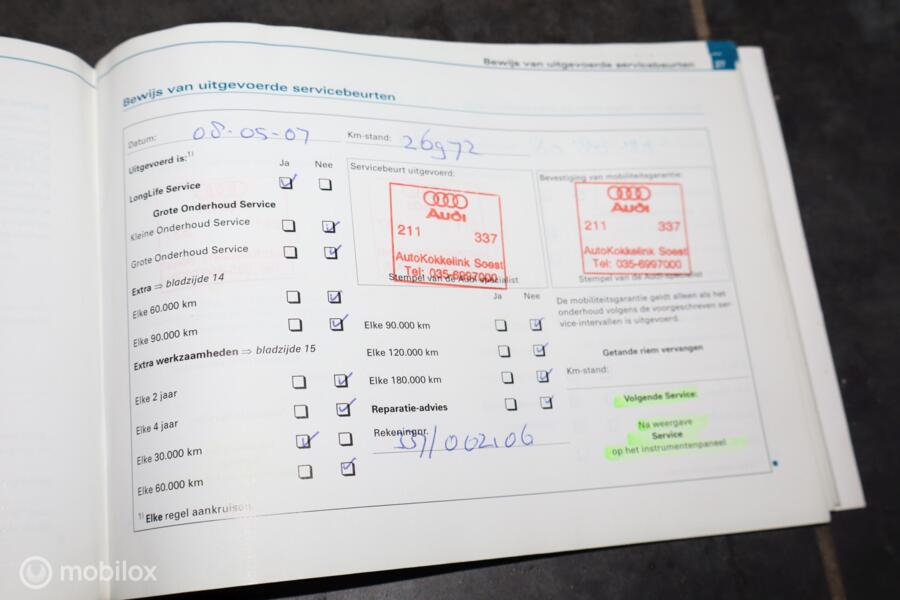 Bewijs van uitgevoerde servicebeurten
27
Bewijs van uitgevoerde servicebeurten
Datum: 08-05-07 Km-stand: 26972
Uitgevoerd is:1)
Ja Nee
LongLife Service
Grote Onderhoud Service
Kleine Onderhoud Service
Grote Onderhoud Service
Extra ⇒ bladzijde 14
Elke 60.000 km
Elke 90.000 km
Extra werkzaamheden ⇒ bladzijde 15
Elke 2 jaar
Elke 4 jaar
Elke 30.000 km
Elke 60.000 km
1) Elke regel aankruisen
Servicebeurt uitgevoerd:
Audi
211 337
AutoKokkelink Soest
Tel: 035-6997000
Stempel van de Audi specialist
Ja Nee
Elke 90.000 km
Elke 120.000 km
Elke 180.000 km
Reparatie-advies
Rekeningnr.
Bevestiging van mobiliteitsgarantie:
Audi
211 337
AutoKokkelink Soest
Tel: 035-6997000
Stempel van de Audi specialist
De mobiliteitsgarantie geldt alleen als het
onderhoud volgens de voorgeschreven ser-
vice-intervallen is uitgevoerd.
Getande riem vervangen
Km-stand:
Volgende Service:
Na weergave
Service
op het instrumentenpaneel
mobilox